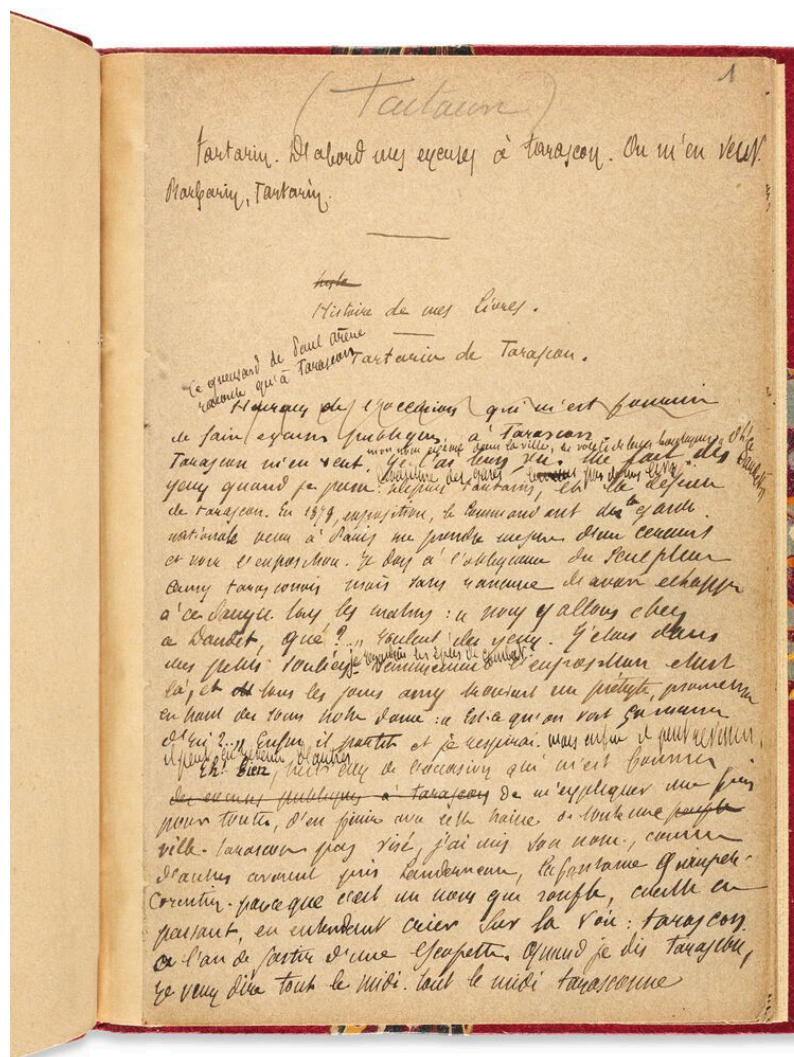 1
(Tartarin)
Tartarin. D'abord mes excuses à Tarascon. On m'en veut.
Barbarin, Tartarin.
Histoire de mes Livres.
Tartarin de Tarascon.
Ce queusard de Paul Arène
raconte qu'à Tarascon
Heureux de l'occasion qui m'est fournie
de faire excuses publiques, à Tarascon.
Tarascon m'en veut. Je l'ai
yeux quand je passe. Depuis Tartarin,
de Tarascon. En 1878, exposition, le Commandant de la garde
nationale venu à Paris me prendre mesure d'un
et voir l'exposition. Je dois à l'obligeance du Sculpteur
Amy tarasconais mais sans rancune d'avoir échappé
à ce danger. tous les matins : « nous y allons chez
ce Daudet, qué ?... » roulant des yeux. J'étais dans
mes petits souliers je les épées de combat. l'exposition était
là, et tous les jours Amy trouvait un prétexte, promesse
en haut des tours notre dame : « Est-ce qu'on voit
d'ici ?... » Enfin il partit et je respirai. mais enfin il peut revenir,
il peut en venir d'autres
Eh! bien, de l'occasion qui m'est fournie
des excuses publiques à Tarascon de m'expliquer une fois
pour toutes, d'en finir avec cette haine de toute une peuple
ville. Tarascon pas visé, j'ai mis son nom, comme
d'autres avaient pris Landerneau, Lafontaine Quimper-
Corentin. parce que c'est un nom qui ronfle, cueilli en
passant, en entendant crier sur la voie : Tarascon
a l'air de sortir d'une escopette. Quand je dis Tarascon,
je veux dire tout le midi. tout le midi tarasconne